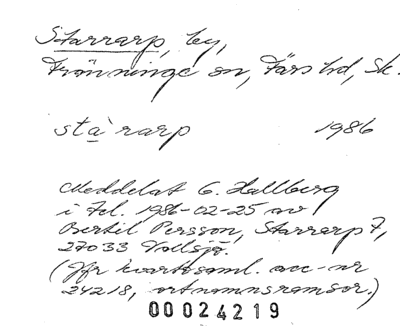 Starrarp, by,
Frönninge sn, Färs hd, Sk.
stàrarp 1986
Meddelat G. Hallberg
i tel. 1986-02-25 av
Bertil Persson, Starrarp 7,
27033 Vollsjö.
(Jfr kvartssaml. acc-nr
24218, ortnamnsramsor.)
00024219